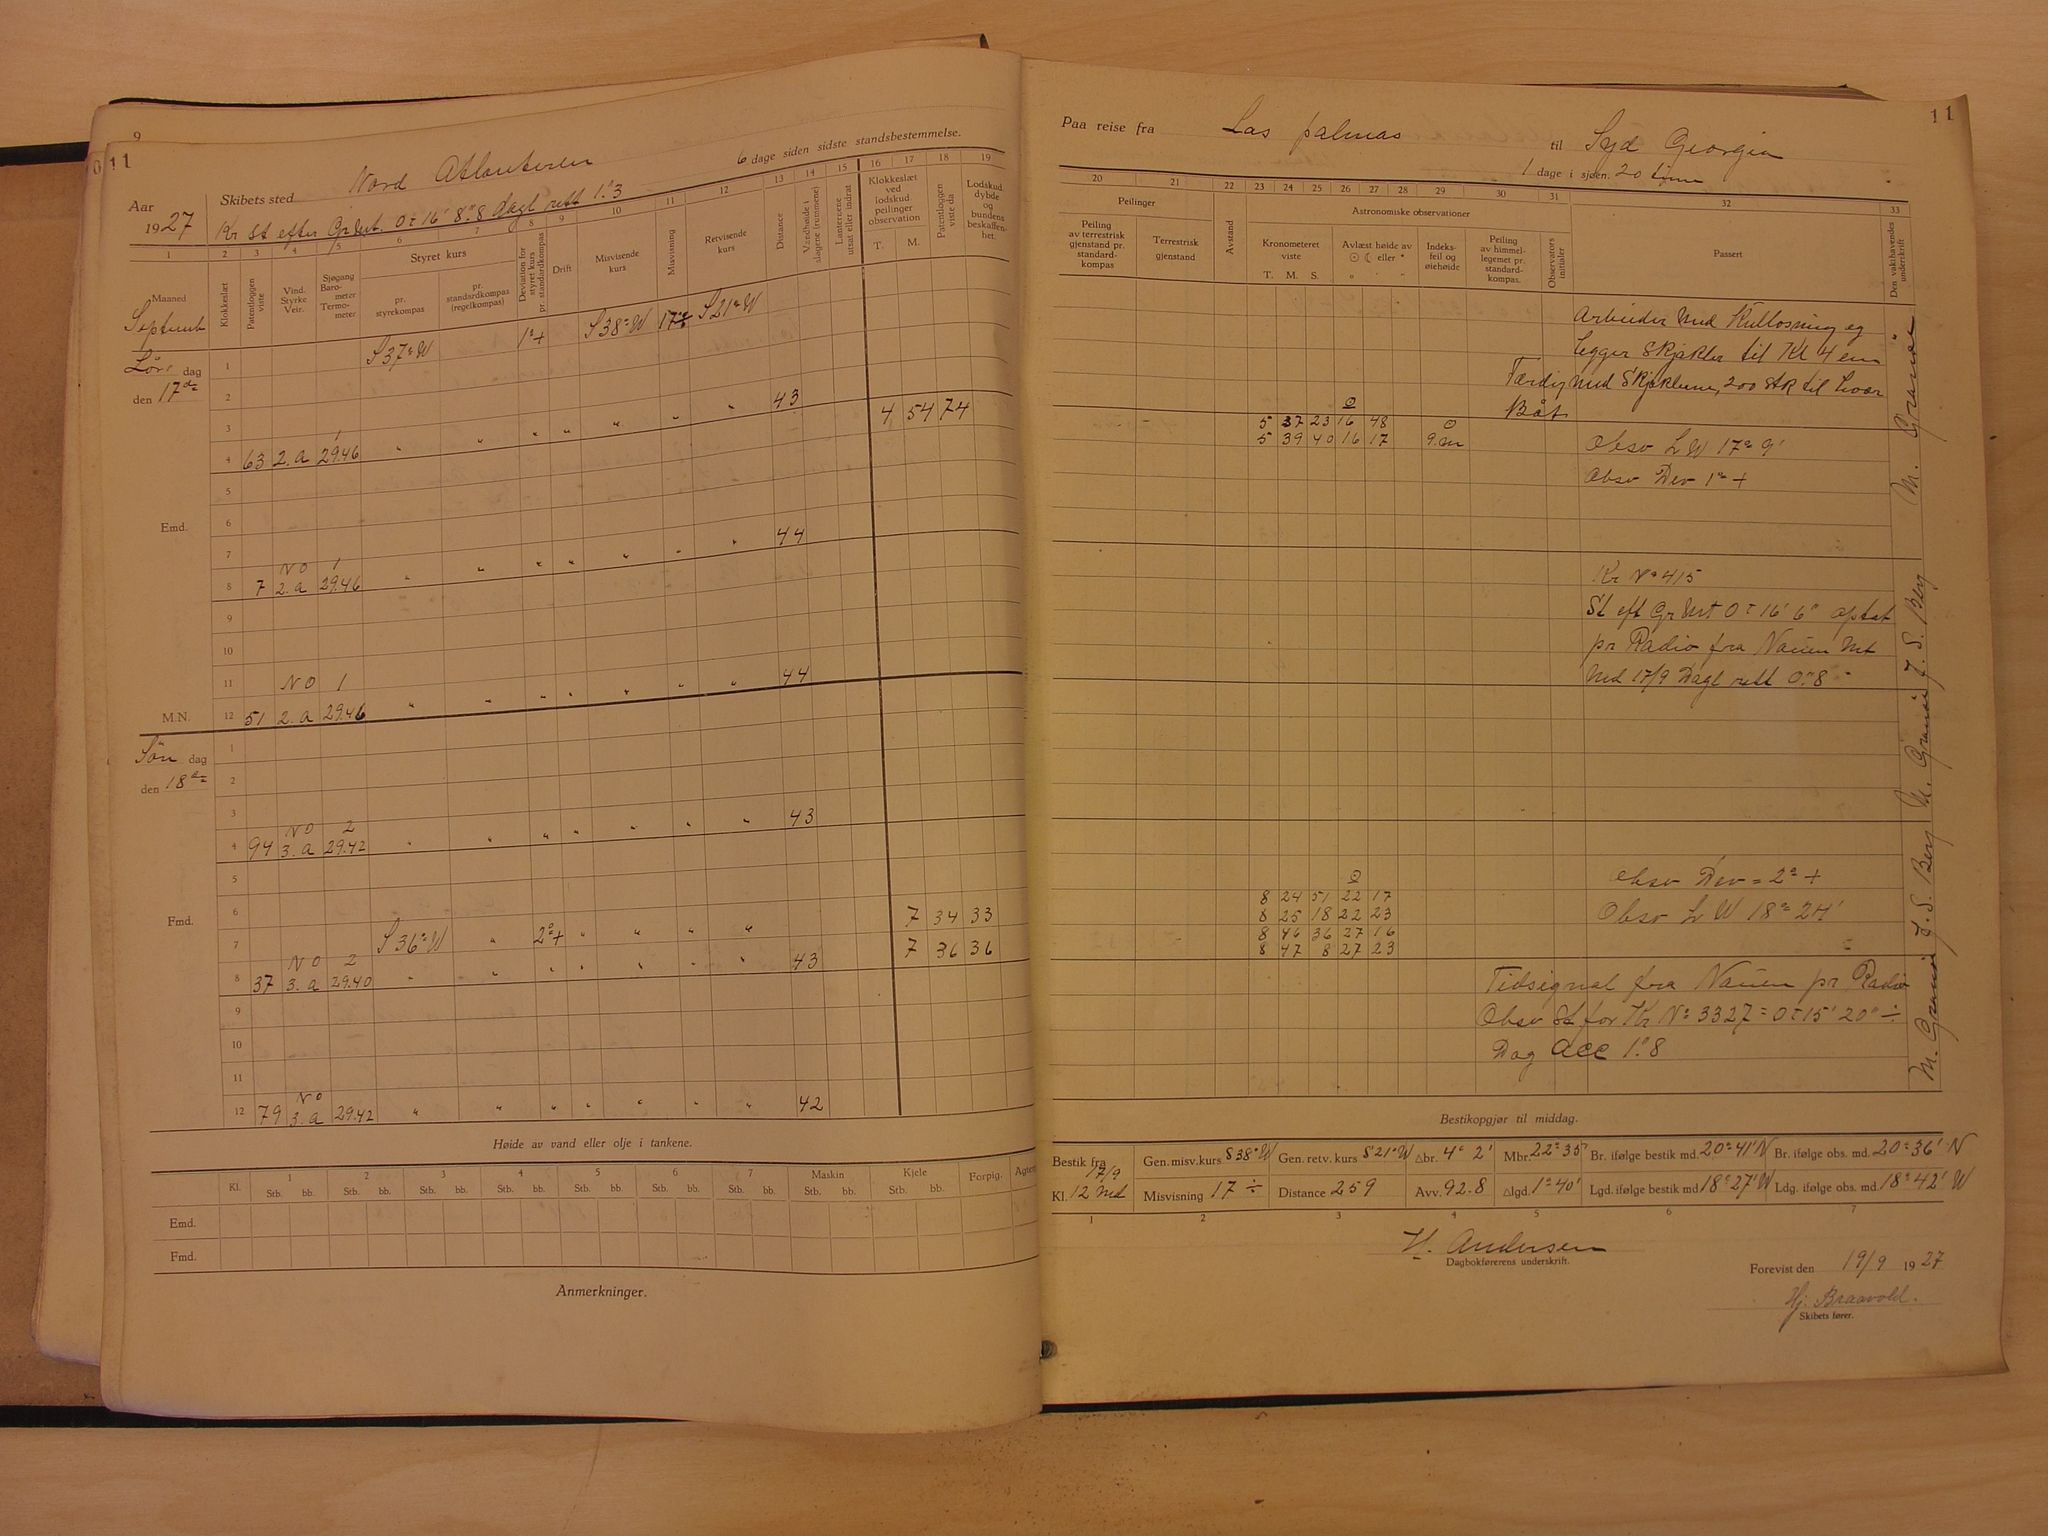 9
11
Aar 1927
Skibets sted Nord Atlanteren
6 dage siden sidste standsbestemmelse.
Kr St efter Gr. 0 16' 8".8 dagl rett 1".3
1 2 3 4 5 6 7 8 9 10 11 12 13 14 15 16 17 18 19
Maaned
Klokkeslæt
Patentloggen viste
Vind. Styrke Veir.
Sjøgang Barometer Termometer
Styret kurs
pr. styrekompas
pr. standardkompas (regelkompas)
Deviation for styret kurs pr. standardkompas
Drift
Misvisende kurs
Misvisning
Retvisende kurs
Distance
Vandhøide i slagene (rummene)
Lanternene utsat eller indrat
Klokkeslæt ved lodskud peilinger observation
T. M.
Patentloggen viste da
Lodskud, dybde og bundens beskaffenhet.
Septemb
Lör dag den 17de
1 S 37° W 1°+ S 38° W 17° S 21° W
2
3 43 4 54 74
4 63 2.a 1 29.46 " " " " " " "
5
Emd.
6
7 44
8 7 NO 2.a 1 29.46 " " " " " " "
9
10
11 44
M.N. 12 51 NO 2.a 1 29.46 " " " " " " "
Sön dag den 18de
1
2
3 43
4 94 NO 3.a 2 29.42 " " " " " " "
5
Fmd.
6 7 34 33
7 S 36° W " 2°+ " " " " 7 36 36
8 37 NO 3.a 2 29.40 " " " " " " " 43
9
10
11
12 79 NO 3.a 29.42 " " " " " " " 42
Høide av vand eller olje i tankene.
Kl. 1 2 3 4 5 6 7 Maskin Kjele Forpig. Agter
Stb. bb. Stb. bb. Stb. bb. Stb. bb. Stb. bb. Stb. bb. Stb. bb. Stb. bb. Stb. bb.
Emd.
Fmd.
Anmerkninger.
11
Paa reise fra Las palmas til Syd Georgia
1 dage i sjøen. 20 time
20 21 22 23 24 25 26 27 28 29 30 31 32 33
Peilinger
Peiling av terrestrisk gjenstand pr. standardkompas
Terrestrisk gjenstand
Avstand
Astronomiske observationer
Kronometeret viste
T. M. S.
Avlæst høide av ☉ ☾ eller *
° ' "
Indeksfeil og øiehøide
Peiling av himmellegemet pr. standardkompas.
Observators initialer
Passert
Den vakthavendes underskrift
Arbeider med Kullosning og
legger Skjakler til Kl 4 em
Færdig med Skjaklene, 200 stk til hver
Båt
☉
5 37 23 16 48
5 39 40 16 17 9.m
Obsv L W 17° 9'
Obsv Dev 1° +
Kr N° 415
St eft Gr 0 16' 6" optat
pr Radio fra Nauen
Md 17/9 Dagl rett 0".8
☉
8 24 51 22 17
8 25 18 22 23
8 46 36 27 16
8 47 8 27 23
obsv Dev = 2° +
Obsv L W 18° 24'
Tidsignal fra Nauen pr Radio
Obsv St for Kr N° 3327 = 0 15' 20" ÷
Dag acc 1".8
M. Granöe
J. S. Berg
M. Granöe
J. S. Berg
M. Granöe
Bestikopgjør til middag.
Bestik fra 17/9
Kl. 12 md
Gen. misv. kurs S 38° W
Misvisning 17 ÷
Gen. retv. kurs S 21° W
Distance 259
△br. 4° 2'
Avv. 92.8
Mbr. 22° 35'
△lgd. 1° 40'
Br. ifølge bestik md. 20° 41' N
Lgd. ifølge bestik md 18° 27' W
Br. ifølge obs. md. 20° 36' N
Ldg. ifølge obs. md. 18° 42' W
1 2 3 4 5 6 7
H. Andersen
Dagbokførerens underskrift.
Forevist den 19/9 1927
Hj. Braavold.
Skibets fører.